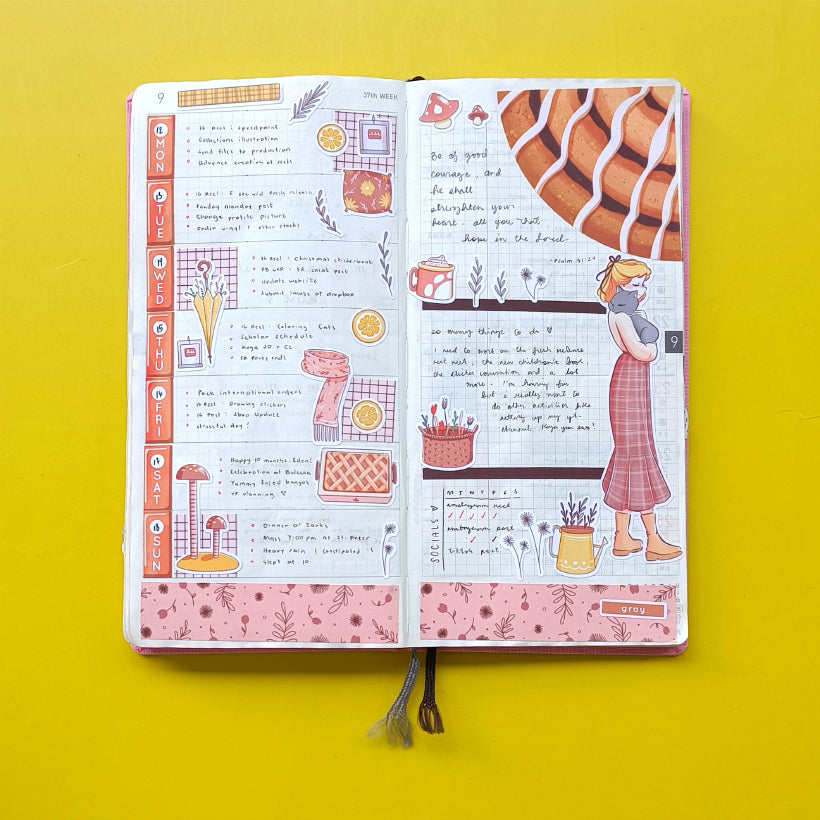 9
37th WEEK
12
MON
IG Reel : Speedpaint
Collections illustration
Send files to production
Advance creation of reels
13
TUE
IG Reel : 5 sec vid fresh release
Funday Monday post
Change profile picture
Order vinyl & sticker stocks
14
WED
IG Reel : Christmas stickerbook
FB GRP : SR sneak peek
Update website
Submit image at dropbox
15
THU
IG Reel : Coloring Cats
Scholar schedule
10 parts ends
FRI
Pack international orders
IG Reel : Drawing stickers
IG Post : Shop Update
stressful day!
17
SAT
Happy 10 months, Eden!
Celebration at Bulacan
Yummy fused bangus
YT planning
18
SUN
Dinner at Zarks
Mass 7:00 pm at St. Peter
Heavy rain | constipated :(
Slept at 10
Be of good
courage, and
he shall
strengthen your
heart, all you that
hope in the Lord.
- Psalm 31:24
so many things to do
I need to work on the fresh release
next week, the new childrens' book,
the sticker convention and a lot
more. I'm having fun
but I really want to
do other activities like
setting up my yt
channel. Hope you can!
9
SOCIALS
M T W T F S S
instagram reel
instagram post
tiktok post
gray